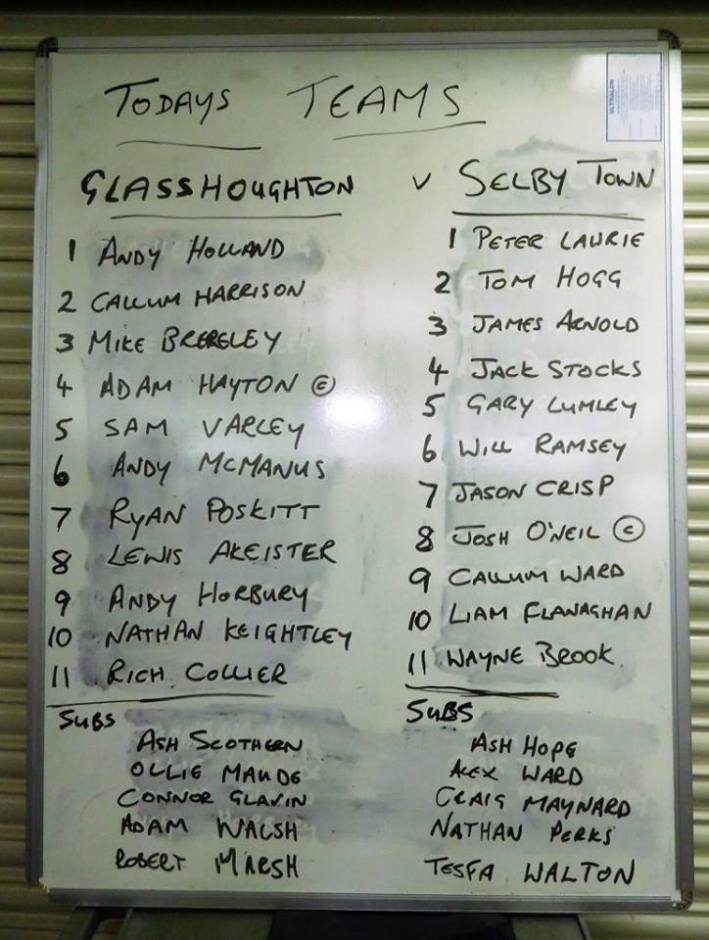 TODAYS TEAMS
GLASSHOUGHTON v SELBY TOWN
1 ANDY HOLLAND
2 CALLUM HARRISON
3 MIKE BREREELEY
4 ADAM HAYTON ©
5 SAM VARLEY
6 ANDY MCMANUS
7 RYAN POSKITT
8 LEWIS AKEISTER
9 ANDY HORBURY
10 NATHAN KEIGHTLEY
11 RICH COLLIER
SUBS
ASH SCOTHERN
OLLIE MAUDE
CONNOR GLAVIN
ADAM WALSH
ROBERT MARSH
1 PETER LAURIE
2 TOM HOGG
3 JAMES ARNOLD
4 JACK STOCKS
5 GARY LUMLEY
6 WILL RAMSEY
7 JASON CRISP
8 JOSH O'NEIL ©
9 CALLUM WARD
10 LIAM FLANAGHAN
11 WAYNE BROOK
SUBS
ASH HOPE
ALEX WARD
CRAIG MAYNARD
NATHAN PERKS
TESFA WALTON
ULTRALON